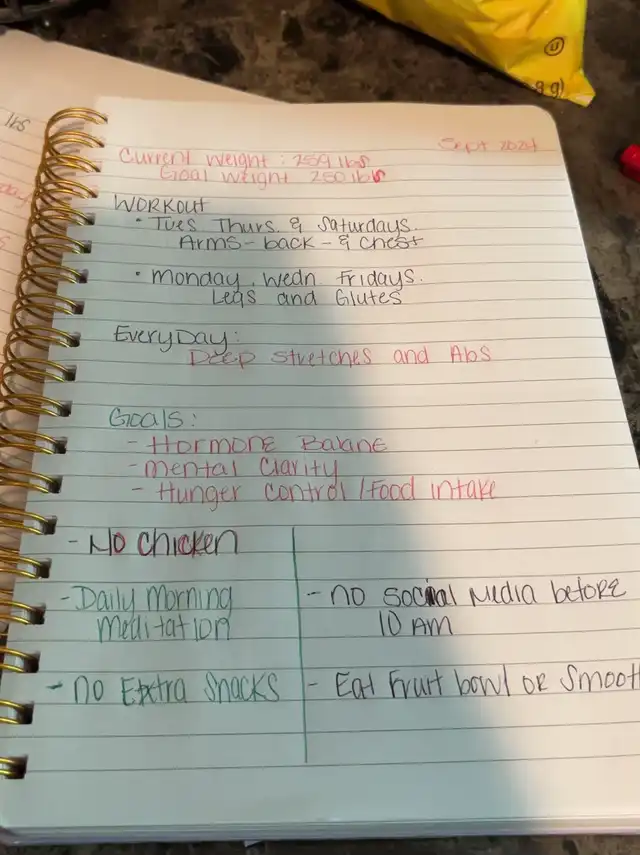 Sept 2024
Current Weight : 259 lbs
Goal Weight 250 lbs
Workout
• Tues Thurs. & Saturdays.
Arms - back - & Chest
• Monday, Wedn Fridays.
Legs and Glutes
EveryDay:
Deep Stretches and Abs
Goals:
- Hormone Balane
- Mental Clarity
- Hunger Control / Food intake
- No Chicken
- Daily Morning
Meditation
- no Social Media before
10 AM
- no Extra Snacks
- Eat Fruit bowl OR Smoot
lbs
U
g)